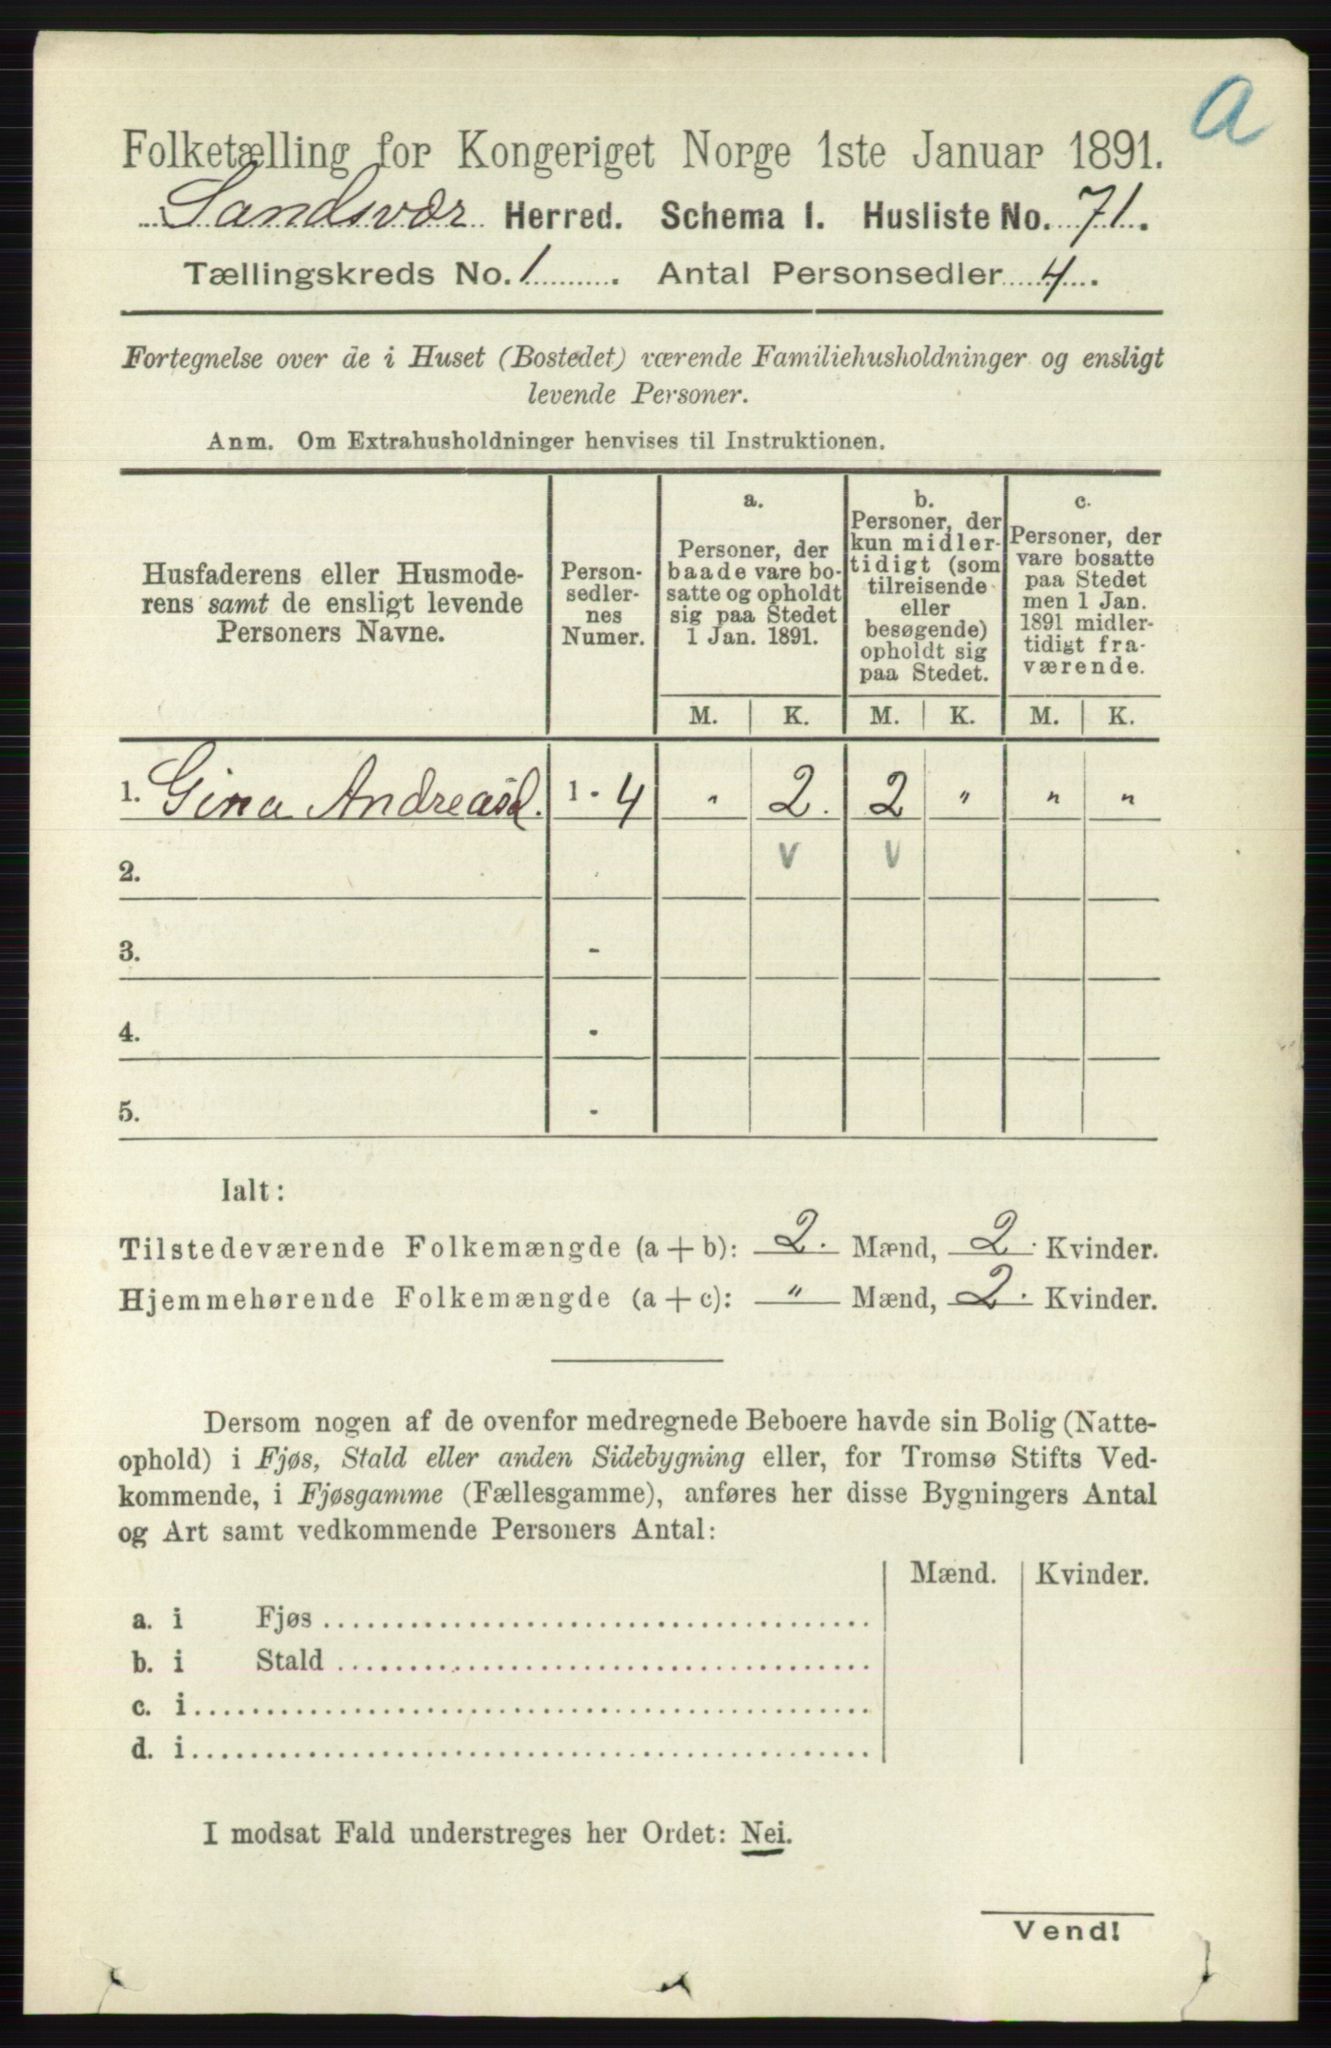 a
Folketælling for Kongeriget Norge 1ste Januar 1891.
Sandsvær Herred. Schema I. Husliste No. 71.
Tællingskreds No. 1. Antal Personsedler 4.
Fortegnelse over de i Huset (Bostedet) værende Familiehusholdninger og ensligt
levende Personer.
Anm. Om Extrahusholdninger henvises til Instruktionen.
Husfaderens eller Husmode-
rens samt de ensligt levende
Personers Navne.
Person-
sedler-
nes
Numer.
a.
Personer, der
baade vare bo-
satte og opholdt
sig paa Stedet
1 Jan. 1891.
b.
Personer, der
kun midler-
tidigt (som
tilreisende
eller
besøgende)
opholdt sig
paa Stedet.
c.
Personer, der
vare bosatte
paa Stedet
men 1 Jan.
1891 midler-
tidigt fra-
værende.
M. K. M. K. M. K.
1. Gina Andreasd. 1 - 4 " 2. 2 " " "
2. v v
3. -
4. -
5. -
Ialt:
Tilstedeværende Folkemængde (a + b): 2. Mænd, 2. Kvinder.
Hjemmehørende Folkemængde (a + c): " Mænd, 2. Kvinder.
Dersom nogen af de ovenfor medregnede Beboere havde sin Bolig (Natte-
ophold) i Fjøs, Stald eller anden Sidebygning eller, for Tromsø Stifts Ved-
kommende, i Fjøsgamme (Fællesgamme), anføres her disse Bygningers Antal
og Art samt vedkommende Personers Antal:
Mænd. Kvinder.
a. i Fjøs
b. i Stald
c. i
d. i
I modsat Fald understreges her Ordet: Nei.
Vend!